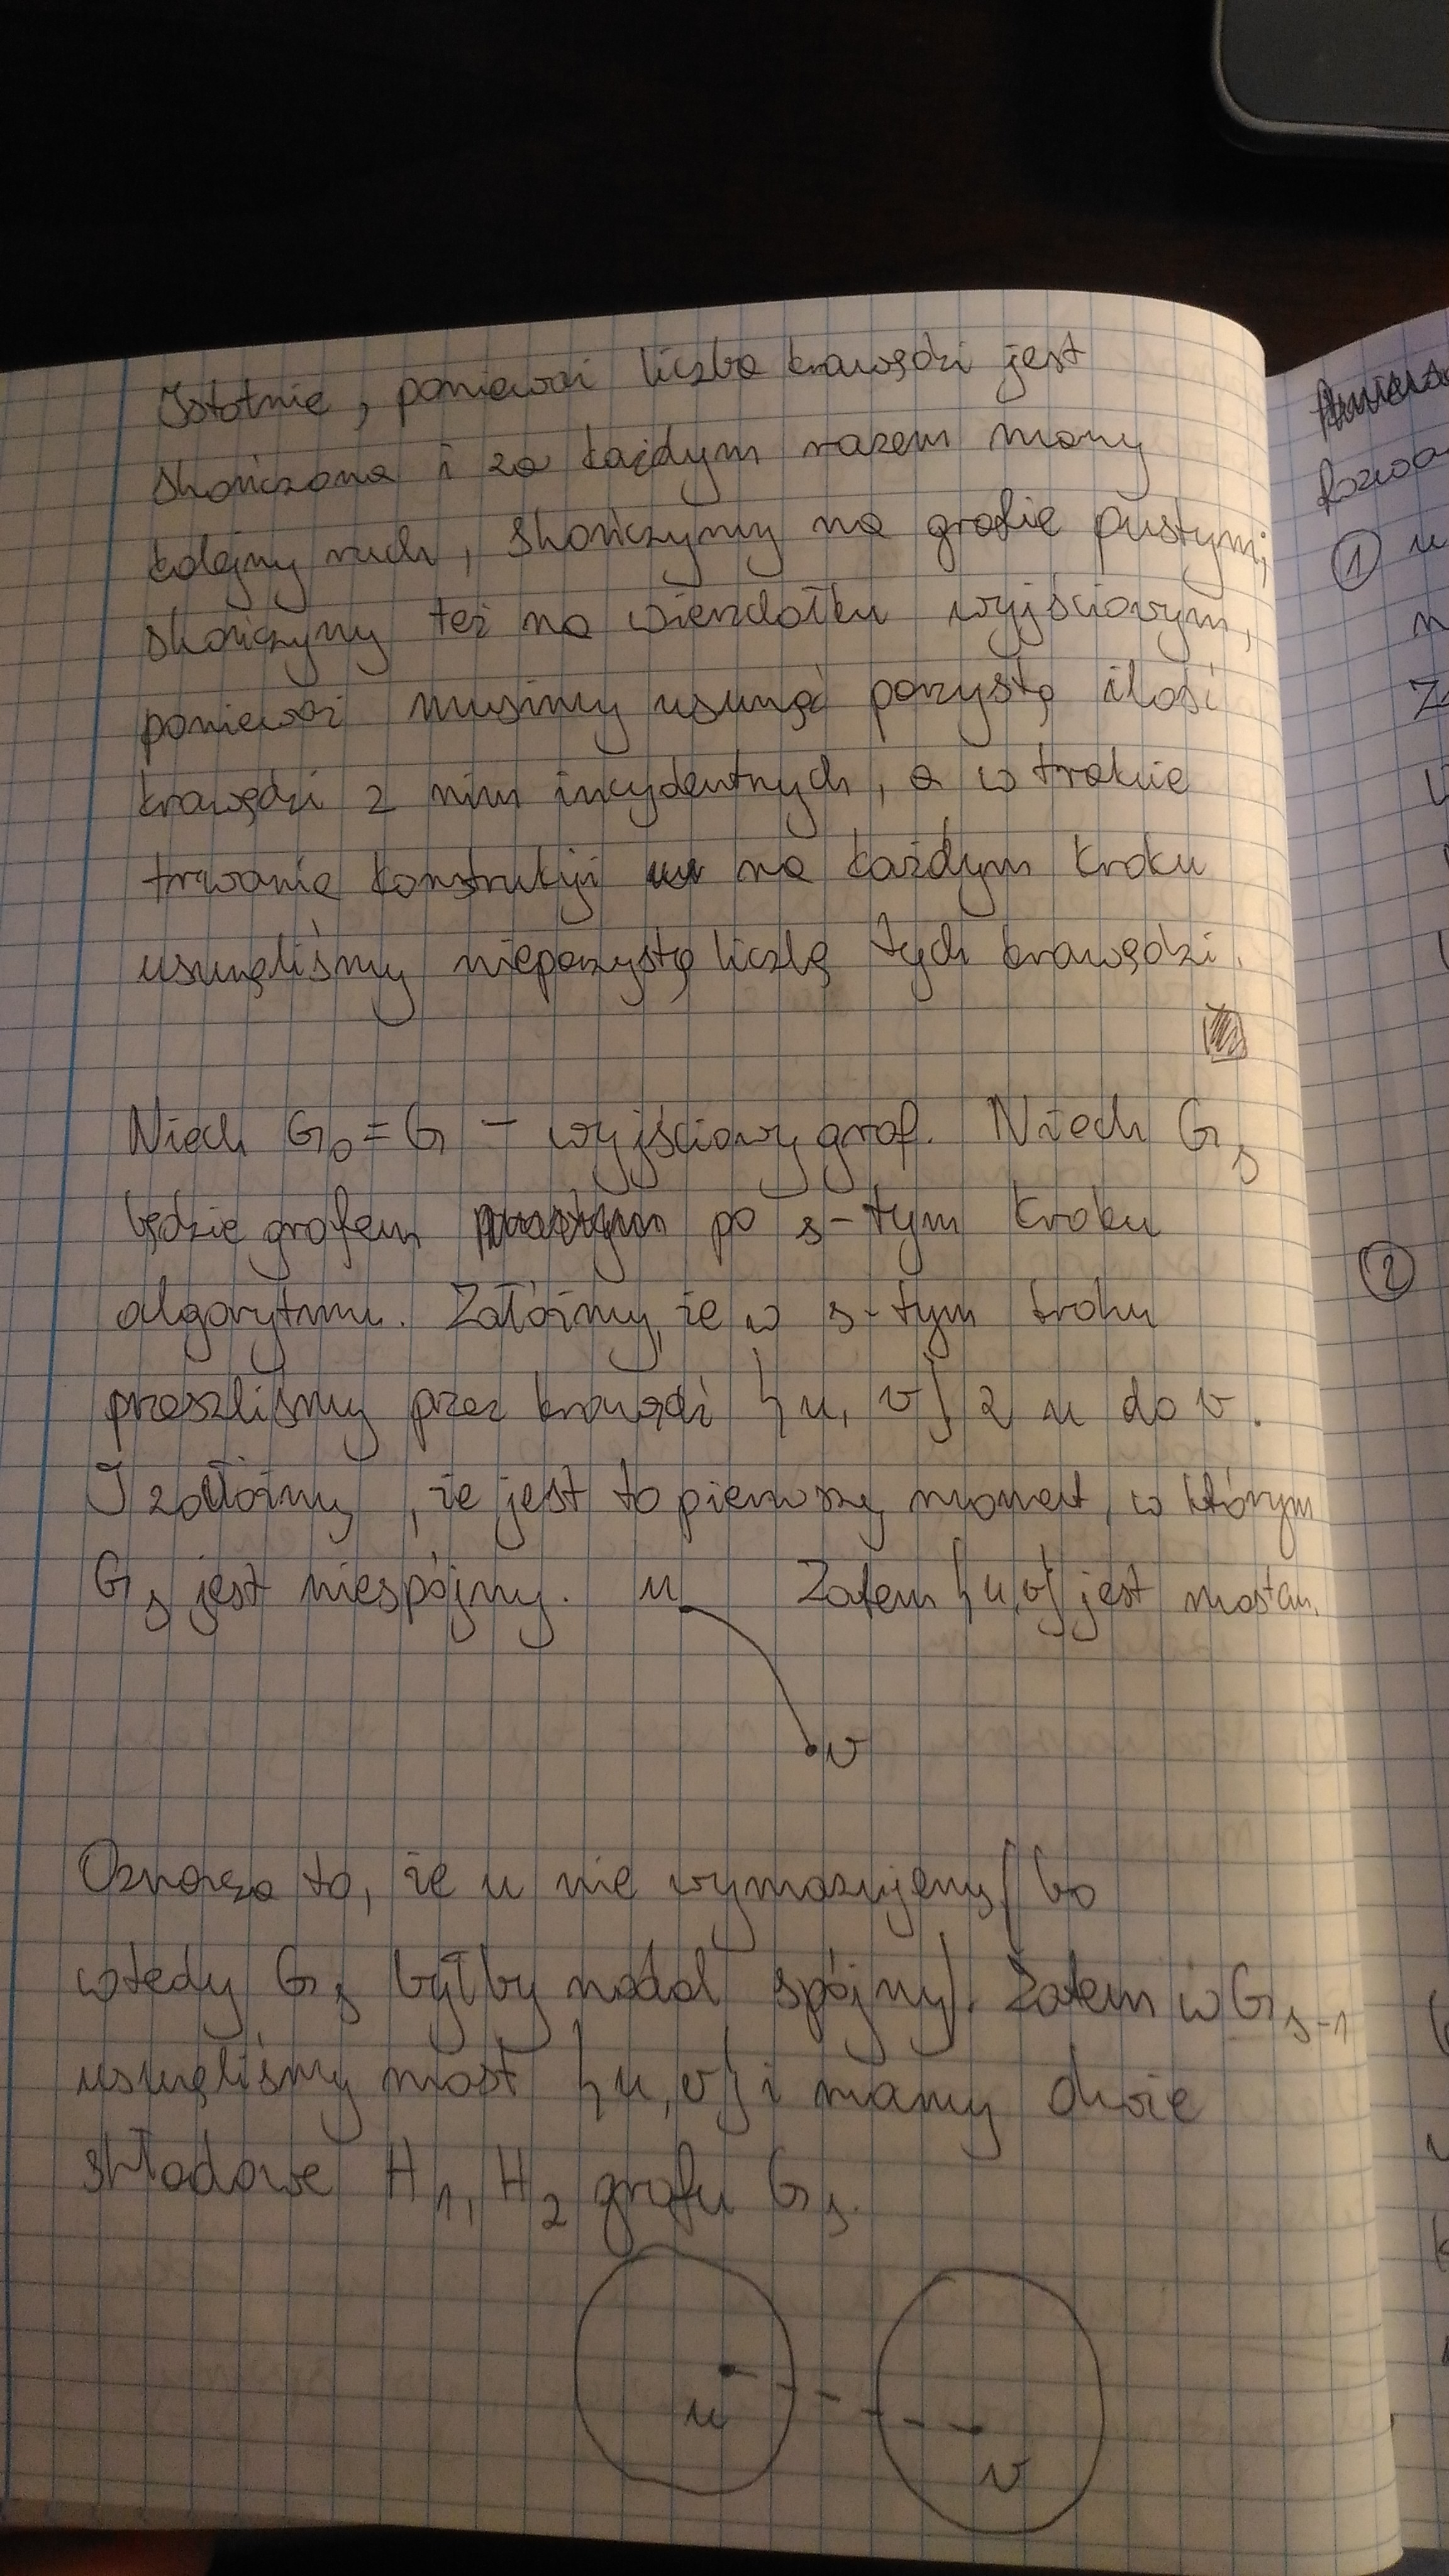 Istotnie, ponieważ liczba krawędzi jest
skończona i za każdym razem mamy
kolejny ruch, skończymy na grafie pustym,
skończymy też na wierzchołku wyjściowym,
ponieważ musimy usunąć parzystą ilość
krawędzi z nim incydentnych, a w trakcie
trwania konstrukcji na każdym kroku
usunęliśmy nieparzystą liczbę tych krawędzi.
Niech G₀ = G – wyjściowy graf. Niech Gₛ
będzie grafem po s-tym kroku
algorytmu. Załóżmy, że w s-tym kroku
przeszliśmy przez krawędź {u, v} z u do v.
I załóżmy, że jest to pierwszy moment, w którym
Gₛ jest niespójny. u Zatem {u,v} jest mostem.
v
Oznacza to, że u nie wymazujemy (bo
wtedy Gₛ byłby nadal spójny). Zatem w Gₛ₋₁
usunęliśmy most {u,v} i mamy dwie
składowe H₁, H₂ grafu Gₛ.
u
v
①
②